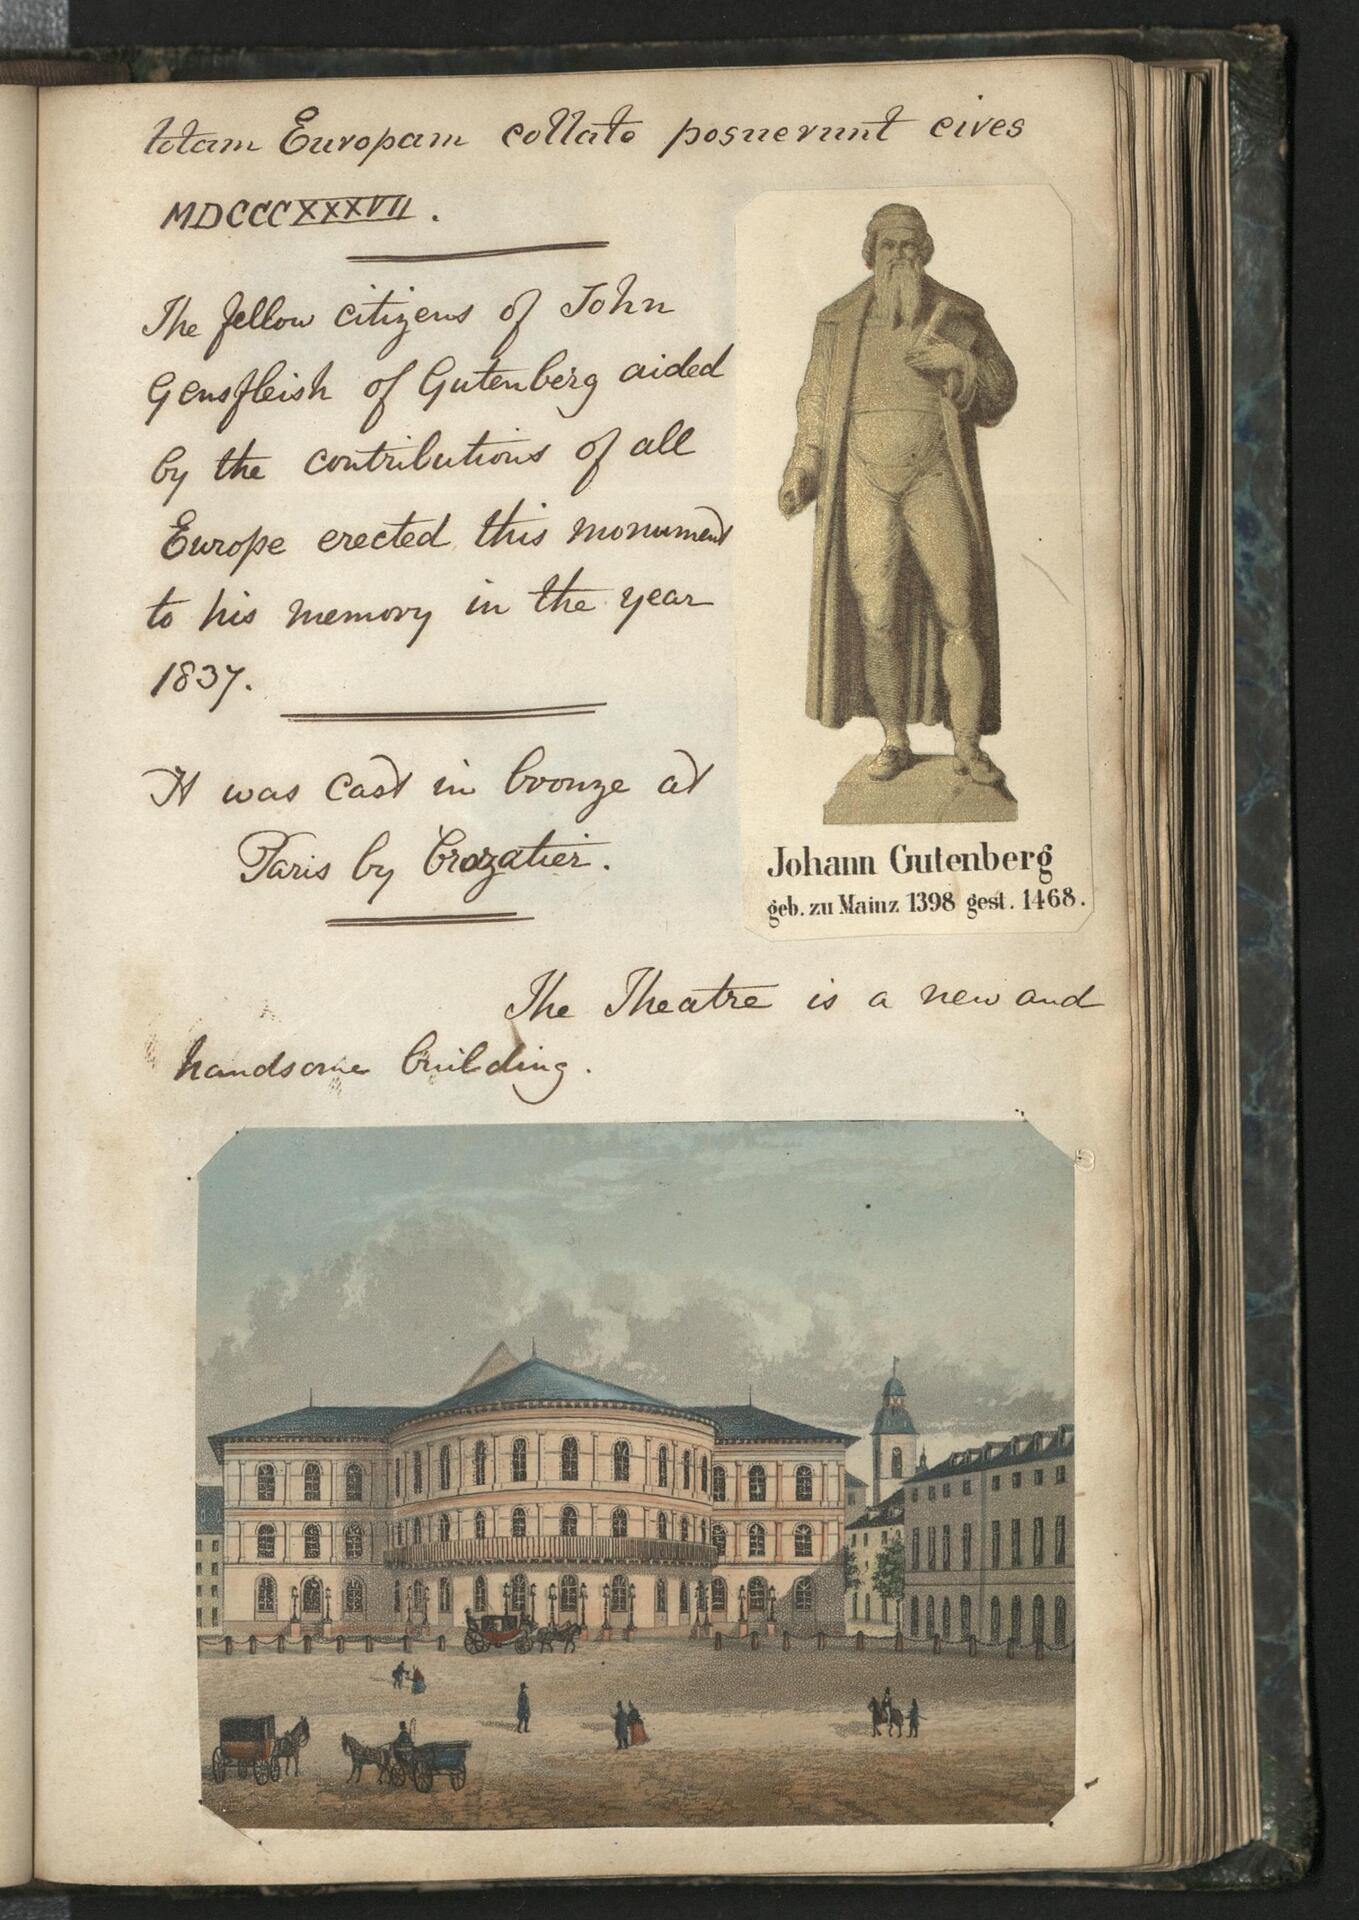 totam Europam collato posuerunt cives
MDCCCXXXVII.
The fellow citizens of John
Gensfleish of Gutenberg aided
by the contributions of all
Europe erected this monument
to his memory in the year
1837.
It was cast in bronze at
Paris by Crozatier.
Johann Gutenberg
geb. zu Mainz 1398 gest. 1468.
The Theatre is a new and
handsome building.